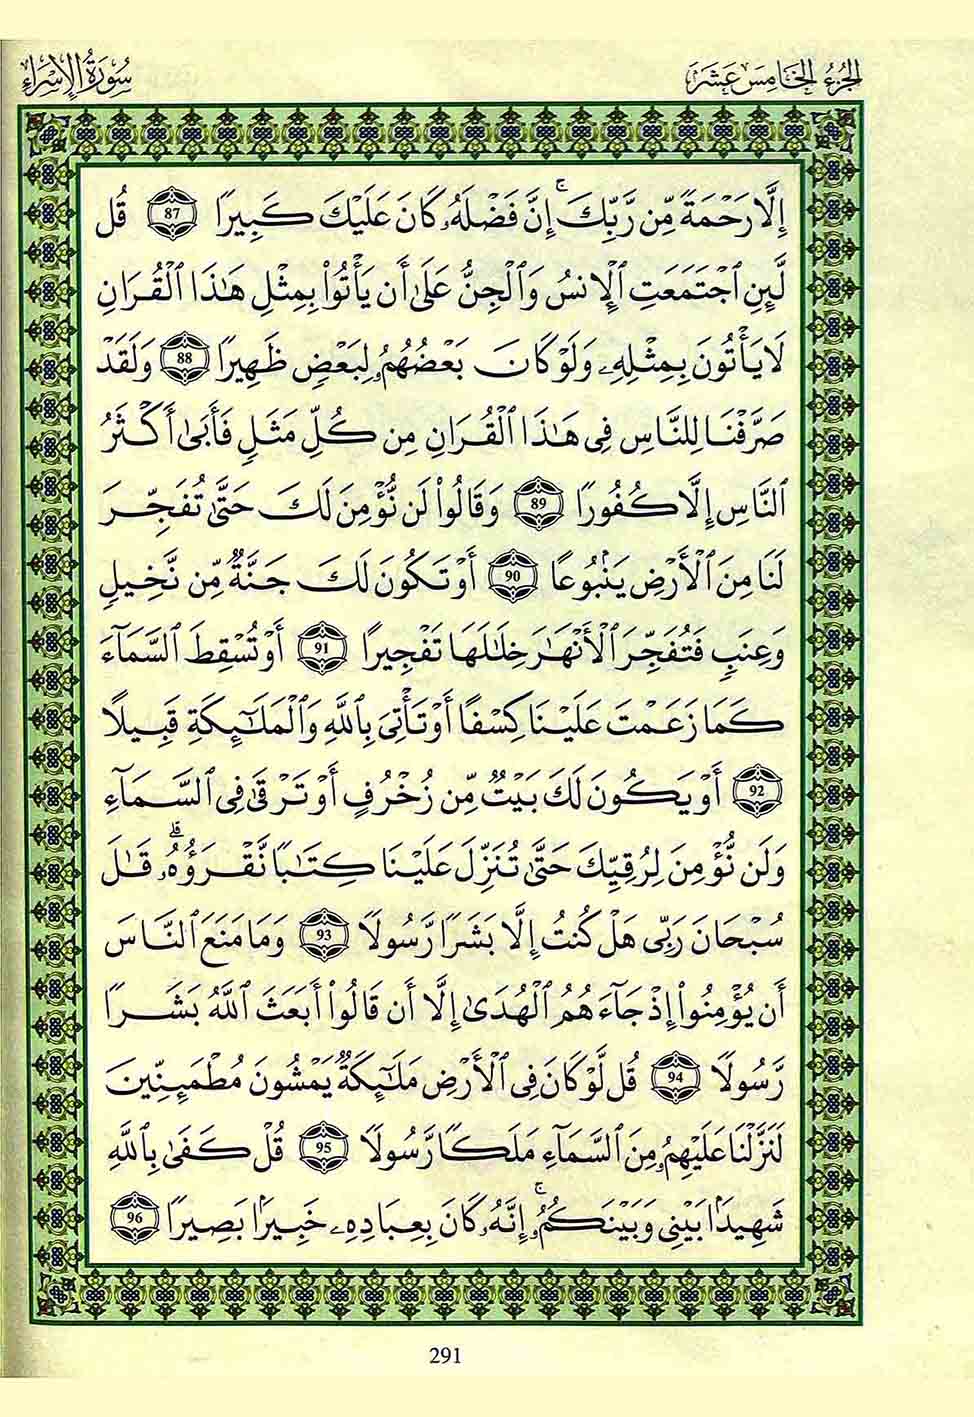 الجزء الخامس عشر
سورة الإسراء
إِلَّا رَحْمَةً مِّن رَّبِّكَ ۚ إِنَّ فَضْلَهُۥ كَانَ عَلَيْكَ كَبِيرًا 87 قُل
لَّئِنِ ٱجْتَمَعَتِ ٱلْإِنسُ وَٱلْجِنُّ عَلَىٰ أَن يَأْتُوا۟ بِمِثْلِ هَـٰذَا ٱلْقُرَانِ
لَا يَأْتُونَ بِمِثْلِهِۦ وَلَوْ كَانَ بَعْضُهُمُۥ لِبَعْضٍ ظَهِيرًا 88 وَلَقَدْ
صَرَّفْنَا لِلنَّاسِ فِى هَـٰذَا ٱلْقُرَانِ مِن كُلِّ مَثَلٍ فَأَبَىٰ أَكْثَرُ
ٱلنَّاسِ إِلَّا كُفُورًا 89 وَقَالُوا۟ لَن نُّؤْمِنَ لَكَ حَتَّىٰ تُفَجِّرَ
لَنَا مِنَ ٱلْأَرْضِ يَنۢبُوعًا 90 أَوْ تَكُونَ لَكَ جَنَّةٌ مِّن نَّخِيلٍ
وَعِنَبٍ فَتُفَجِّرَ ٱلْأَنْهَـٰرَ خِلَـٰلَهَا تَفْجِيرًا 91 أَوْ تُسْقِطَ ٱلسَّمَآءَ
كَمَا زَعَمْتَ عَلَيْنَا كِسْفًا أَوْ تَأْتِىَ بِٱللَّهِ وَٱلْمَلَـٰٓئِكَةِ قَبِيلًا
92 أَوْ يَكُونَ لَكَ بَيْتٌ مِّن زُخْرُفٍ أَوْ تَرْقَىٰ فِى ٱلسَّمَآءِ
وَلَن نُّؤْمِنَ لِرُقِيِّكَ حَتَّىٰ تُنَزِّلَ عَلَيْنَا كِتَـٰبًا نَّقْرَؤُهُۥ ۗ قَـٰلَ
سُبْحَانَ رَبِّى هَلْ كُنتُ إِلَّا بَشَرًا رَّسُولًا 93 وَمَا مَنَعَ ٱلنَّاسَ
أَن يُؤْمِنُوا۟ إِذْ جَآءَهُمُ ٱلْهُدَىٰ إِلَّا أَن قَالُوا۟ أَبَعَثَ ٱللَّهُ بَشَرًا
رَّسُولًا 94 قُل لَّوْ كَانَ فِى ٱلْأَرْضِ مَلَـٰٓئِكَةٌ يَمْشُونَ مُطْمَئِنِّينَ
لَنَزَّلْنَا عَلَيْهِمُۥ مِنَ ٱلسَّمَآءِ مَلَكًا رَّسُولًا 95 قُلْ كَفَىٰ بِٱللَّهِ
شَهِيدًۢا بَيْنِى وَبَيْنَكُمُۥ ۚ إِنَّهُۥ كَانَ بِعِبَادِهِۦ خَبِيرًۢا بَصِيرًا 96
291